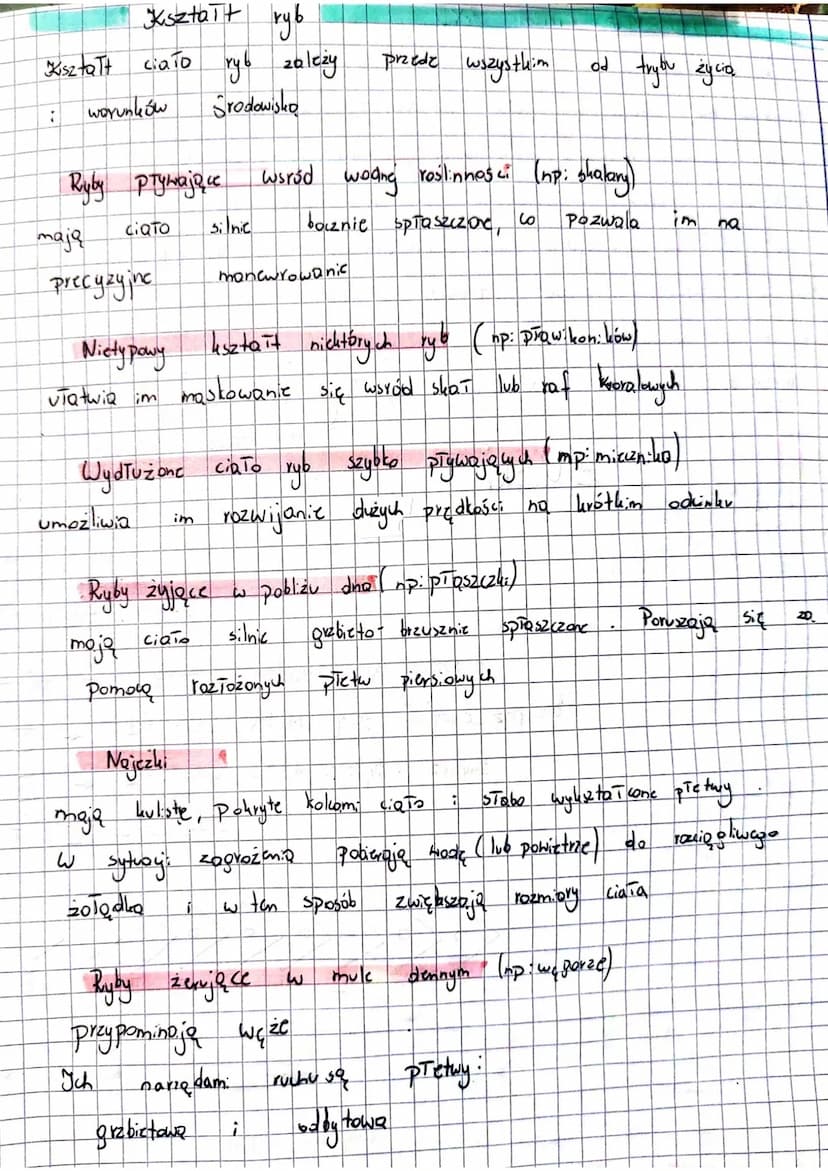 Kształt ryb
Kształt ciało ryb zależy przede wszystkim od trybu życia
i warunków środowiska
Ryby pływające wsród wodnej roślinności (np: skalary)
mają ciało silnie bocznie spłaszczone, co pozwala im na
precyzyjne manewrowanie
Nietypowy kształt niektórych ryb (np: pławikoników)
ułatwia im maskowanie się wsród skał lub raf koralowych
Wydłużone ciało ryb szybko pływających (mp: miecznika)
umożliwia im rozwijanie dużych prędkości na krótkim odcinku
Ryby żyjące w pobliżu dna (np: płaszczki)
mają ciało silnie grzbieto-brzusznie spłaszczone. Poruszają się za
pomocą rozłożonych płetw piersiowych
Najeżki
mają kulistę, pokryte kolcami ciało i słabo wykształcone płetwy.
W sytuacji zagrożenia pobierają wodę (lub powietrze) do rozciągliwego
żołądka i w ten sposób zwiększają rozmiary ciała
Ryby żerujące w mule dennym (np: węgorze)
przypominają węże
Ich narządami ruchu są płetwy:
grzbietowa i odbytowa